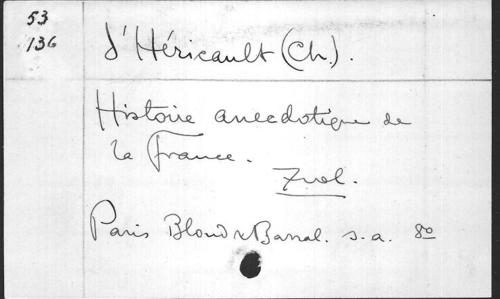 53
136
d'Héricault (Ch.).
Histoire anecdotique de
la France.
7 vol.
Paris Bloud & Barral. s.a. 8º